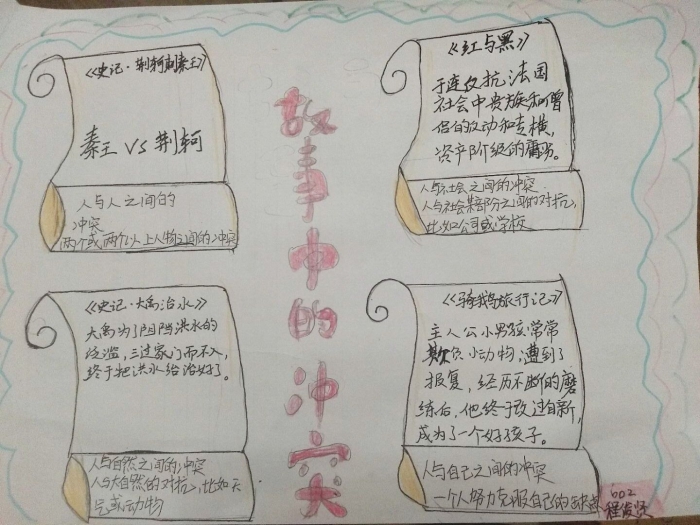 《史记·荆轲刺秦王》
秦王 VS 荆轲
人与人之间的
冲突
两个或两个以上人物之间的冲突
《红与黑》
于连反抗法国
社会中贵族和僧
侣的反动和专横,
资产阶级的庸俗。
人与社会之间的冲突
人与社会某部分之间的对抗,
比如公司或学校
故事中的冲突
《史记·大禹治水》
大禹为了阻挡洪水的
泛滥,三过家门而不入,
终于把洪水给治好了。
人与自然之间的冲突
人与大自然的对抗,比如天
气或动物
《骑鹅旅行记》
主人公小男孩常常
欺负小动物,遭到了
报复,经历不断的磨
练后,他终于改过自新,
成为了一个好孩子。
人与自己之间的冲突
一个人努力克服自己的缺点
602